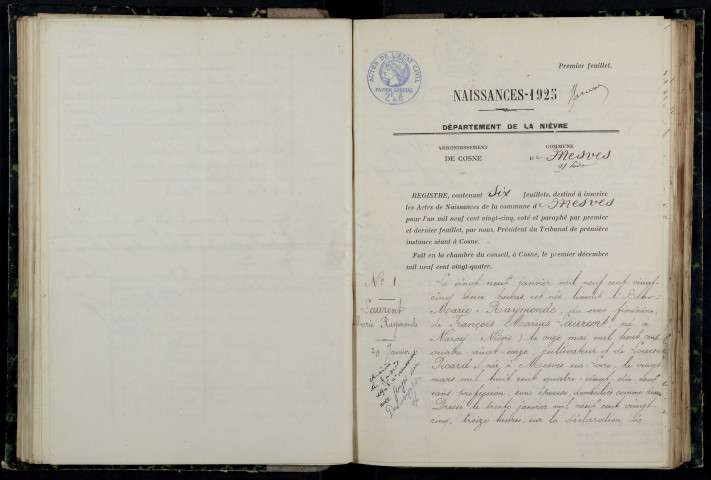 Premier feuillet.
ACTES DE L'ÉTAT CIVIL
PAPIER SPÉCIAL
NAISSANCES-1925
DÉPARTEMENT DE LA NIÈVRE
ARRONDISSEMENT
DE COSNE
COMMUNE
de Mesves
s/ Loire
REGISTRE, contenant Six feuillets, destiné à inscrire
les Actes de Naissances de la commune de Mesves
pour l'an mil neuf cent vingt-cinq, coté et paraphé par premier
et dernier feuillet, par nous, Président du Tribunal de première
instance séant à Cosne.
Fait en la chambre du conseil, à Cosne, le premier décembre
mil neuf cent vingt-quatre.
N° 1
Laurent
Marie Raymonde
29 Janvier
Le vingt neuf janvier mil neuf cent vingt-
cinq, heures, est née
Marie Raymonde, du sexe féminin,
de François Marius Laurent né à
Narcy (Nièvre) le onze mai mil huit cent
quatre-vingt-onze, cultivateur et de Louise
Picard, née à Mesves sur Loire, le vingt
mars mil huit cent quatre-vingt-dix-neuf
sans profession, son épouse, domiciliés comme dessus
Dressé le trente janvier mil neuf cent vingt-
cinq, treize heures, sur la déclaration de